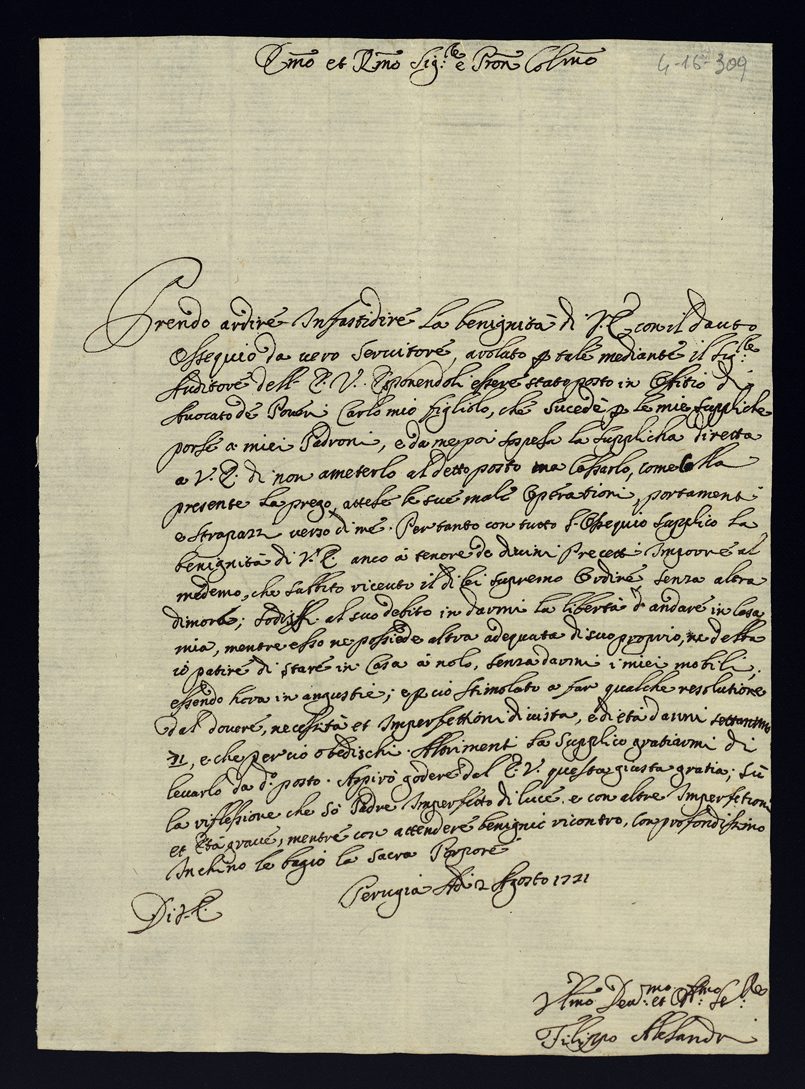 Emo et Rmo Sig.re e Pron Colmo
4-16-309
Prendo ardire Infastidire la benignità di V.E. con il douto
Ossequio da vero Servitore, avolato p tale mediante il Sig.re
Auditore dell E. V. Esponendoli essere stato posto in Offitio di
Avocato de Poveri Carlo mio figliolo, che sucedè p le mie suppliche
porse a miei Padroni, e da me poi sospesa la supplicha diretta
a V.E. di non ameterlo al detto posto ma Cassarlo, come Colla
presente la prego, attese le sue male Operationi, portamenti
e strapazzi verso di me. Per tanto con tutto l'Ossequio supplico la
benignità di V.E. anco à tenore de divini Precetti Imporre al
medemo, che subbito riceuto il di lei supremo Ordine senza altra
dimora, sodisfi al suo debito in darmi la libertà d'andare in Casa
mia, mentre esso ne possiede altra adequata di suo proprio, ne debba
io patire di stare in Casa à nolo, senza darmi i miei mobili,
essendo hora in angustie; e p ciò stimolato a far qualche resolutione
dal dovere, necessità et Imperfettioni di vista, e di età d'anni
71, e che perciò obedischi. Altrimenti la supplico gratiarmi di
levarlo da d.o posto. Aspirò godere dal E.V. questa giusta gratia; sù
la riflessione che sò Padre Imperfetto di luce, e con altre Imperfetioni
et Età grave, mentre con attendere benignio ricontro, con profondissimo
Inchino le bagio la Sacra Porpore
Perugia Adi 2 Agosto 1721
Di V.E.
Hmo Deu.mo et Obl.mo Se.re
Filippo Alesandri